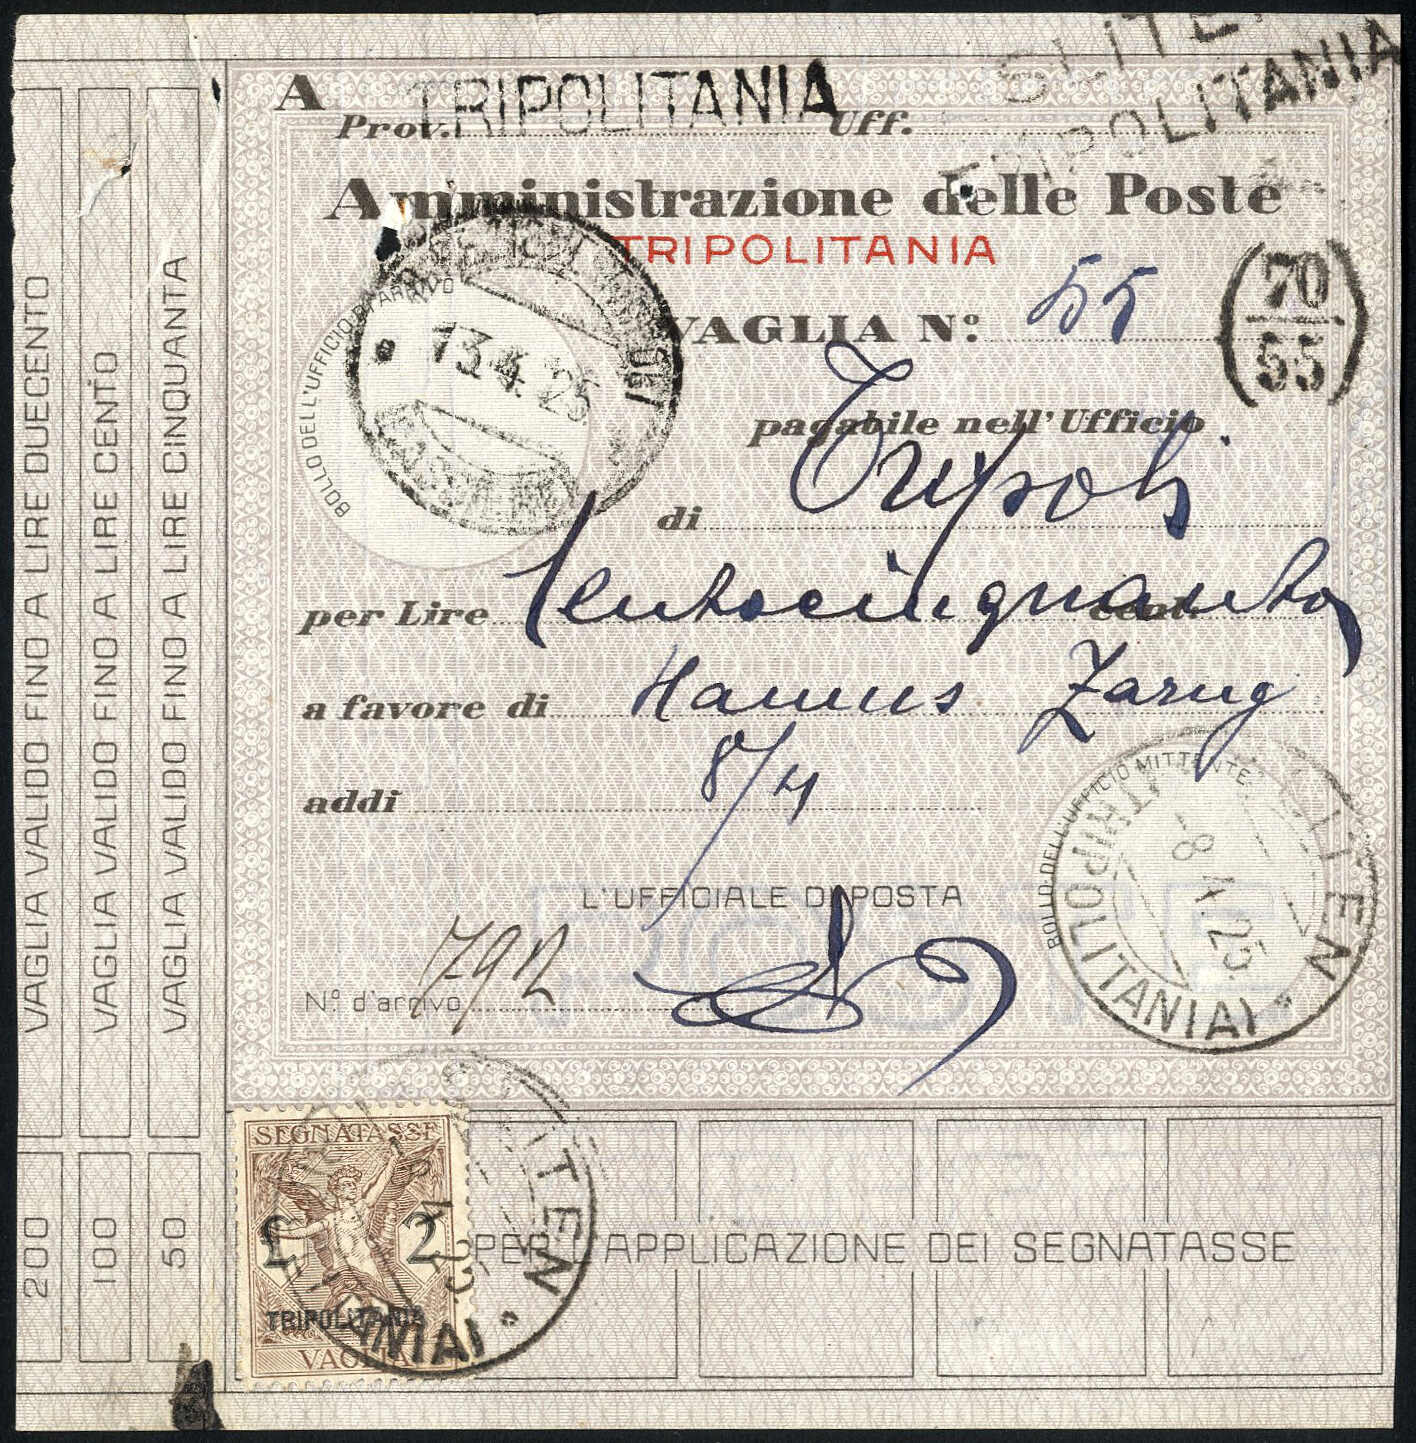 SLITEN
TRIPOLITANIA
A
Prov. TRIPOLITANIA Uff.
Amministrazione delle Poste
TRIPOLITANIA
VAGLIA Nº: 55
70
55
pagabile nell'Ufficio
di Tripoli
per Lire Centocinquanta cent.
a favore di Hamus Zarug
addi 8/4
L'UFFICIALE DI POSTA
Nº d'arrivo 792
BOLLO DELL'UFFICIO D'ARRIVO
13.4.25
BOLLO DELL'UFFICIO MITTENTE
SLITEN
(TRIPOLITANIA)
-8.4.25
VAGLIA VALIDO FINO A LIRE DUECENTO
200
VAGLIA VALIDO FINO A LIRE CENTO
100
VAGLIA VALIDO FINO A LIRE CINQUANTA
50
SEGNATASSE
£ 2
TRIPOLITANIA
VAGLIA
SLITEN
PER L'APPLICAZIONE DEI SEGNATASSE